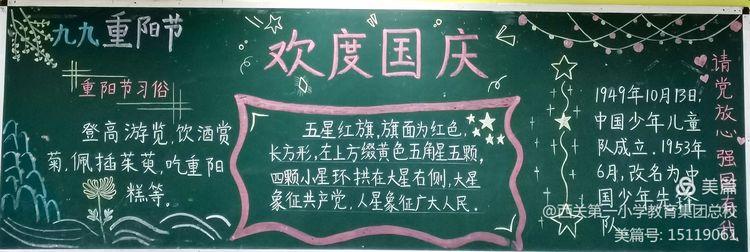 九九重阳节
重阳节习俗
登高游览,饮酒赏
菊,佩插茱萸,吃重阳
糕等。
欢度国庆
五星红旗,旗面为红色,
长方形,左上方缀黄色五角星五颗,
四颗小星环拱在大星右侧,大星
象征共产党,小星象征广大人民.
1949年10月13日,
中国少年儿童
队成立.1953年
6月,改名为中
国少年先锋
队
请党放心 强国有我
美篇
@西关第一小学教育集团总校
美篇号: 15119061